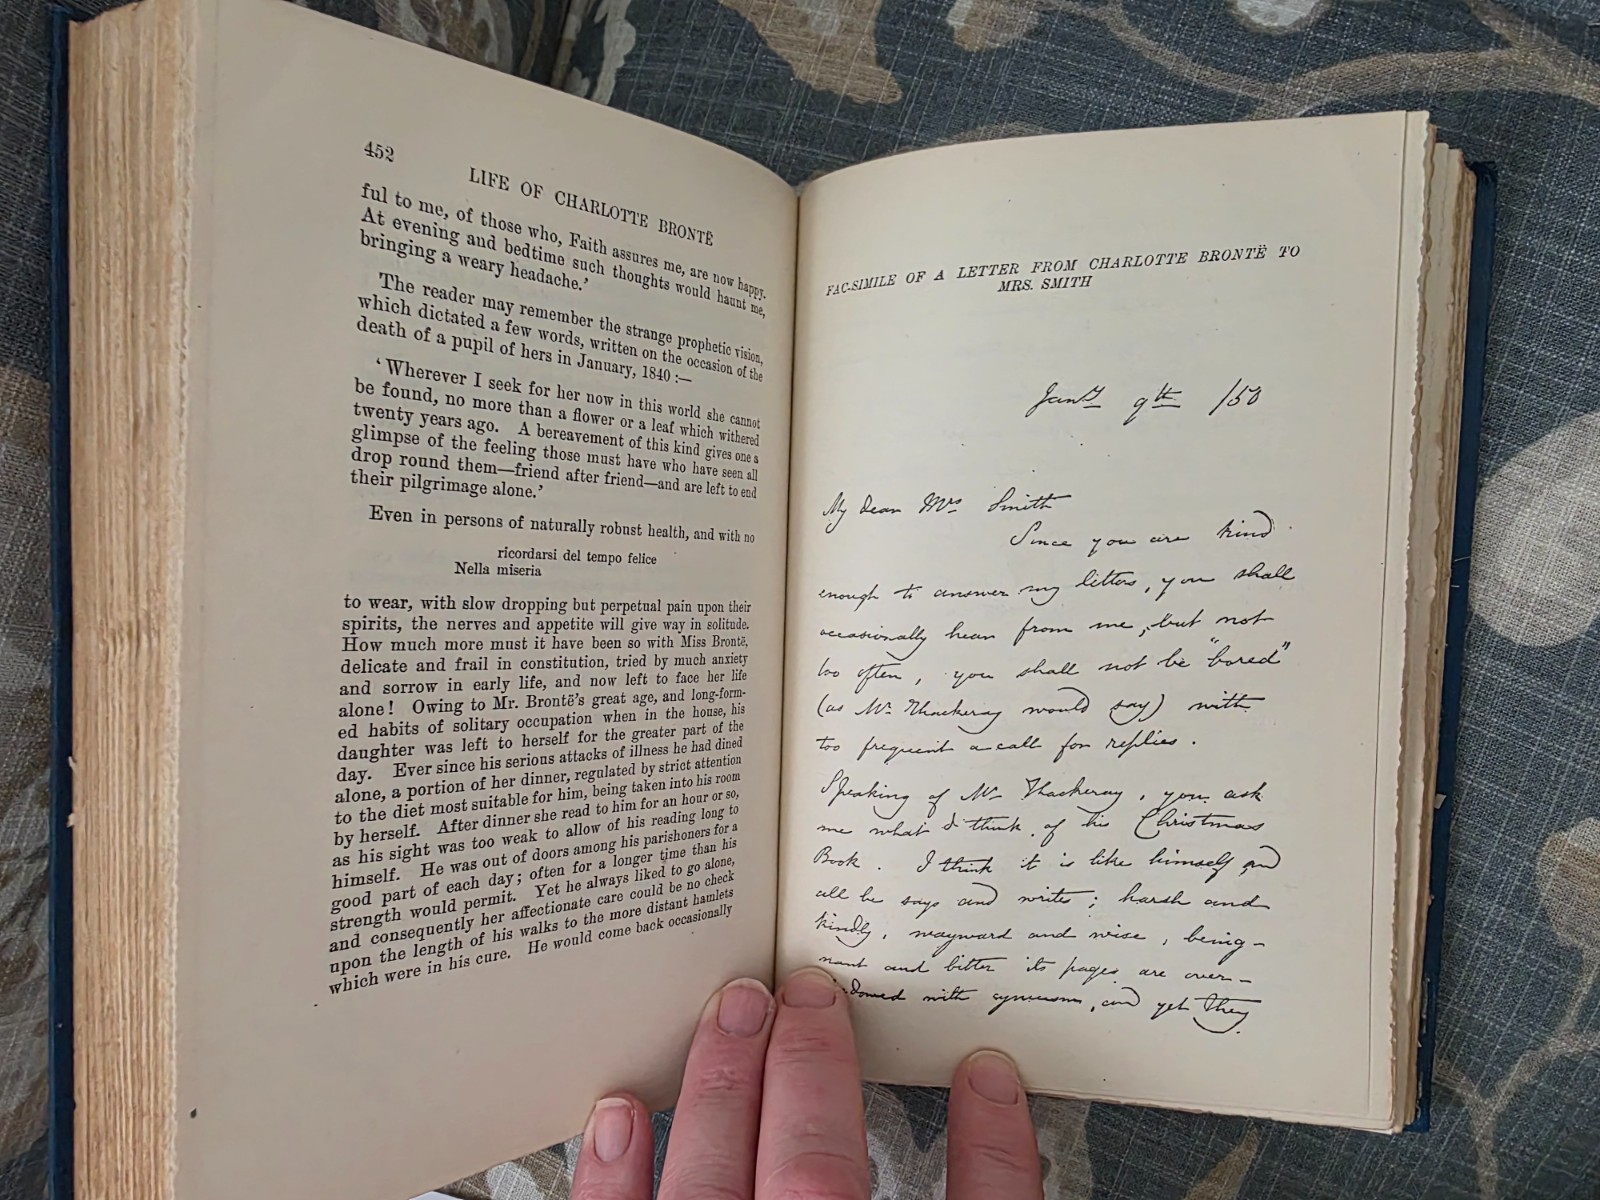 452
LIFE OF CHARLOTTE BRONTË
ful to me, of those who, Faith assures me, are now happy.
At evening and bedtime such thoughts would haunt me,
bringing a weary headache.'
The reader may remember the strange prophetic vision,
which dictated a few words, written on the occasion of the
death of a pupil of hers in January, 1840 :—
'Wherever I seek for her now in this world she cannot
be found, no more than a flower or a leaf which withered
twenty years ago. A bereavement of this kind gives one a
glimpse of the feeling those must have who have seen all
drop round them—friend after friend—and are left to end
their pilgrimage alone.'
Even in persons of naturally robust health, and with no
ricordarsi del tempo felice
Nella miseria
to wear, with slow dropping but perpetual pain upon their
spirits, the nerves and appetite will give way in solitude.
How much more must it have been so with Miss Brontë,
delicate and frail in constitution, tried by much anxiety
and sorrow in early life, and now left to face her life
alone! Owing to Mr. Brontë's great age, and long-form-
ed habits of solitary occupation when in the house, his
daughter was left to herself for the greater part of the
day. Ever since his serious attacks of illness he had dined
alone, a portion of her dinner, regulated by strict attention
to the diet most suitable for him, being taken into his room
by herself. After dinner she read to him for an hour or so,
as his sight was too weak to allow of his reading long to
himself. He was out of doors among his parishoners for a
good part of each day; often for a longer time than his
strength would permit. Yet he always liked to go alone,
and consequently her affectionate care could be no check
upon the length of his walks to the more distant hamlets
which were in his cure. He would come back occasionally
FAC-SIMILE OF A LETTER FROM CHARLOTTE BRONTË TO
MRS. SMITH
Jany 9th /50
My dear Mrs Smith
Since you are kind
enough to answer my letters, you shall
occasionally hear from me, but not
too often, you shall not be "bored"
(as Mr Thackeray would say) with
too frequent a call for replies.
Speaking of Mr Thackeray, you ask
me what I think of his Christmas
Book. I think it is like himself and
all he says and writes; harsh and
kindly, wayward and wise, being-
nant and bitter its pages are over-
with cynicism, and yet they